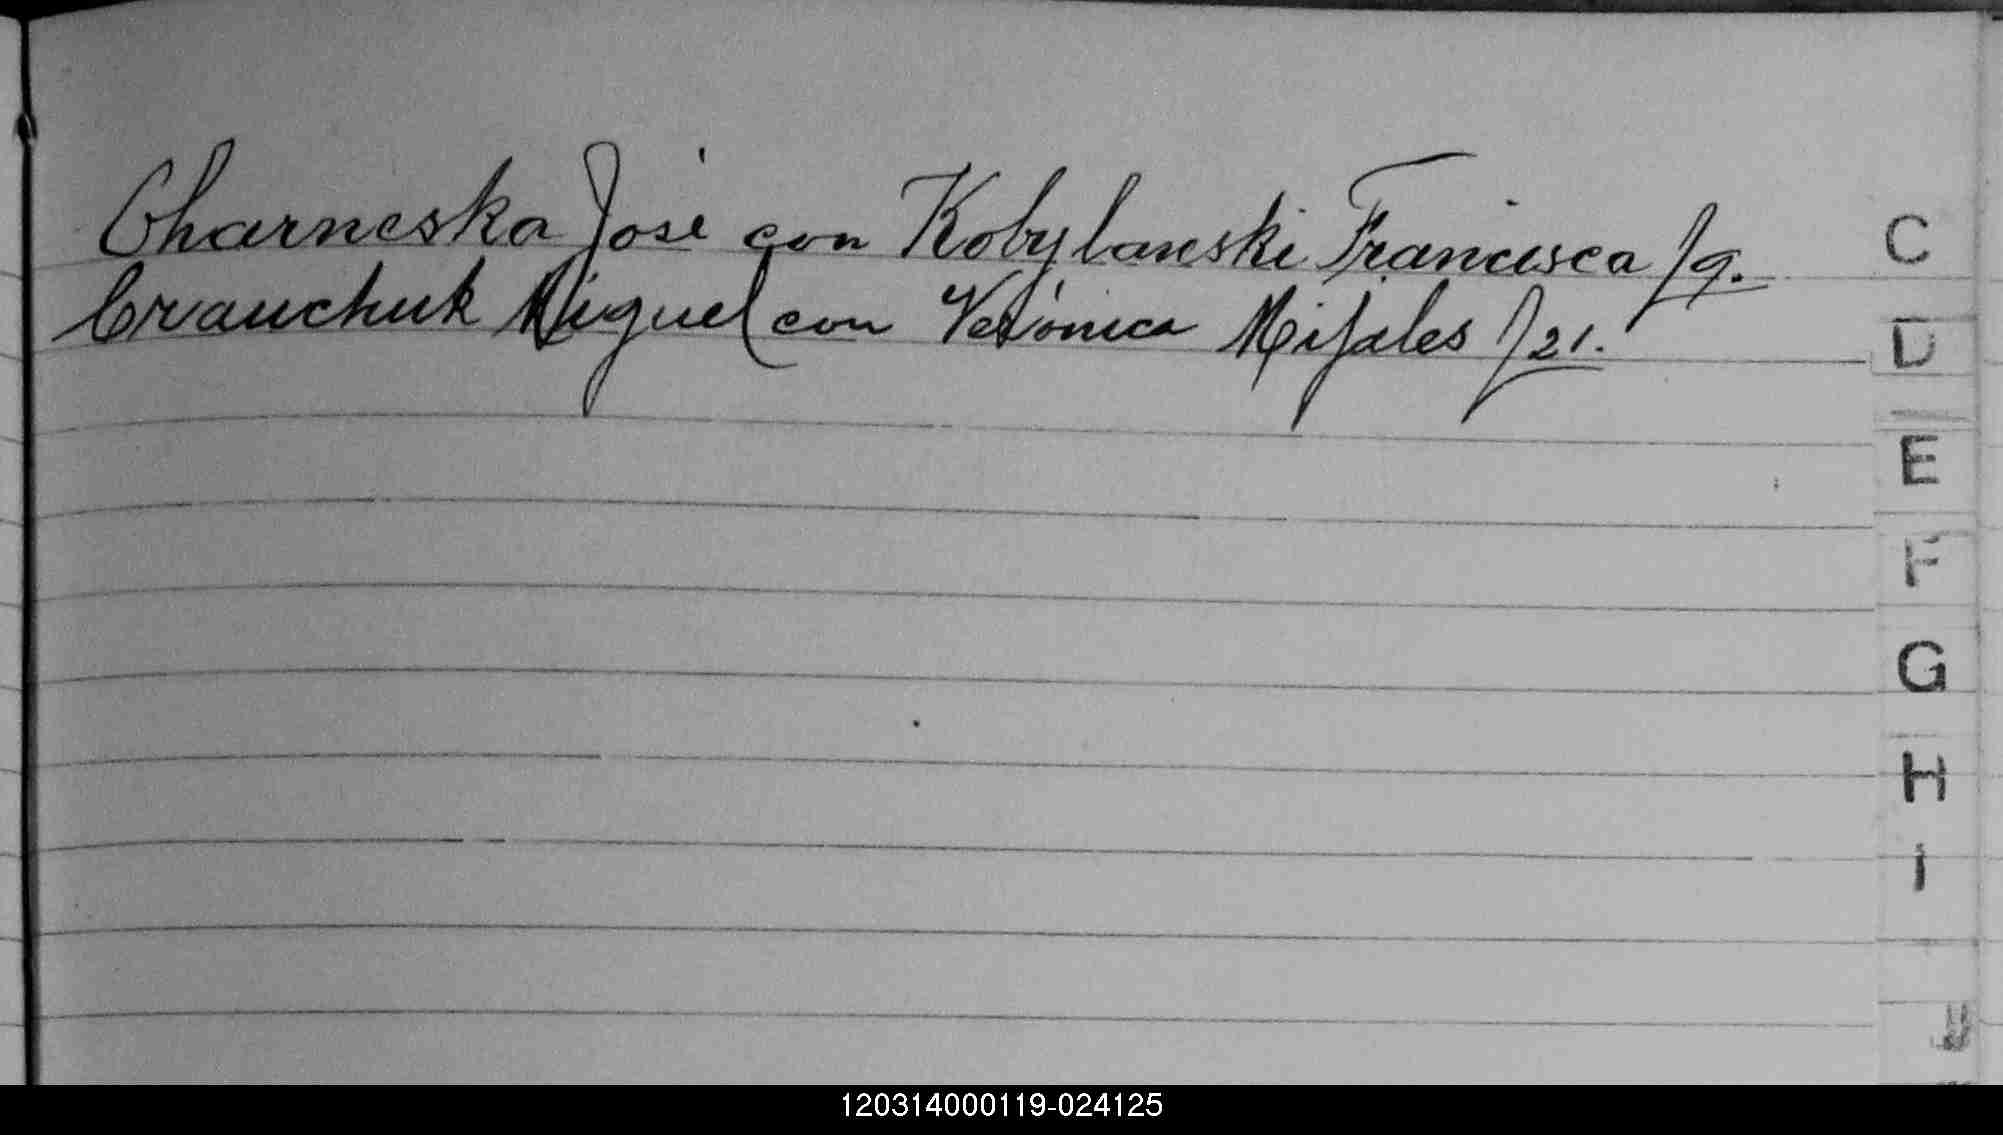 Charneska José con Kobylanski Francisca f 9.
Crvauchuk Miguel con Verónica Mijales f 21.
C
D
E
F
G
H
I
J
120314000119-024125